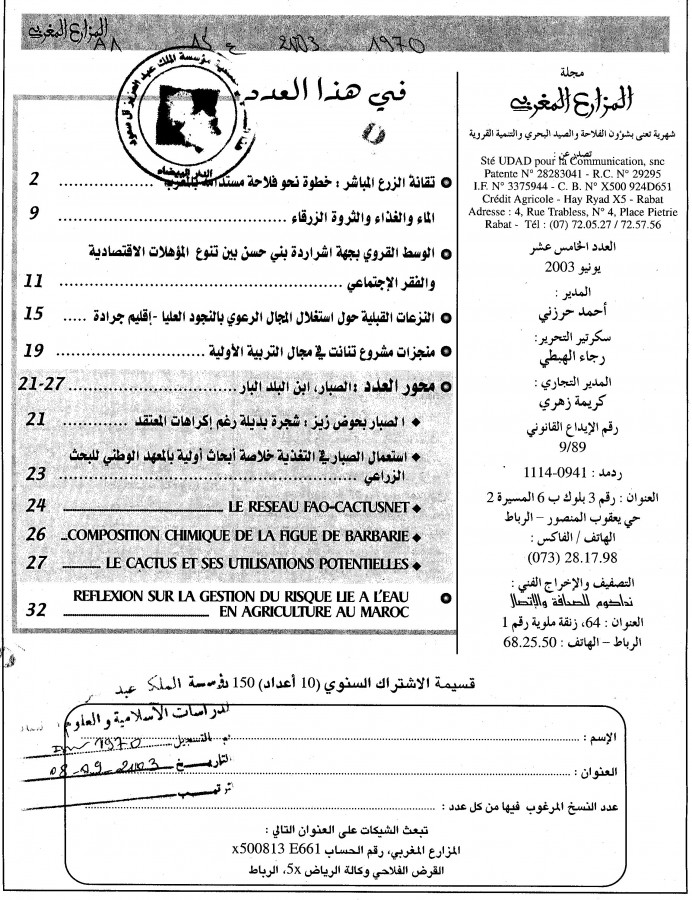 المزارع المغربي
15 2003 1970
مجلة
المزارع المغربي
شهرية تعنى بشؤون الفلاحة والصيد البحري والتنمية القروية
تصدر عن :
Sté UDAD pour la Communication, snc
Patente N° 28283041 - R.C. N° 29295
I.F. N° 3375944 - C. B. N° X500 924D651
Crédit Agricole - Hay Ryad X5 - Rabat
Adresse : 4, Rue Trabless, N° 4, Place Pietrie
Rabat - Tél : (07) 72.05.27 / 72.57.56
العدد الخامس عشر
يونيو 2003
المدير :
أحمد حرزني
سكرتير التحرير:
رجاء الهبطي
المدير التجاري :
كريمة زهري
رقم الإيداع القانوني
9/89
ردمد : 0941-1114
العنوان : رقم 3 بلوك ب 6 المسيرة 2
حي يعقوب المنصور – الرباط
الهاتف / الفاكس :
(073) 28.17.98
التصفيف والإخراج الفني :
نداكوم للصحافة والإتصال
العنوان : 64، زنقة ملوية رقم 1
الرباط – الهاتف : 68.25.50
في هذا العدد
مؤسسة الملك عبد العزيز آل سعود
الدار البيضاء
تقانة الزرع المباشر : خطوة نحو فلاحة مستدامة بالمغرب ........ 2
الماء والغذاء والثروة الزرقاء ........ 9
الوسط القروي بجهة اشراردة بني حسن بين تنوع المؤهلات الاقتصادية
والفقر الإجتماعي ........ 11
النزعات القبلية حول استغلال المجال الرعوي بالنجود العليا -إقليم جرادة ..... 15
منجزات مشروع تنانت في مجال التربية الأولية ........ 19
محور العدد :الصبار، ابن البلد البار ........ 21-27
الصبار بحوض زيز : شجرة بديلة رغم إكراهات المعتقد ........ 21
استعمال الصبار في التغذية خلاصة أبحاث أولية بالمعهد الوطني للبحث
الزراعي ........ 23
LE RESEAU FAO-CACTUSNET ........ 24
COMPOSITION CHIMIQUE DE LA FIGUE DE BARBARIE .. 26
LE CACTUS ET SES UTILISATIONS POTENTIELLES ........ 27
REFLEXION SUR LA GESTION DU RISQUE LIE A L'EAU
EN AGRICULTURE AU MAROC ........ 32
قسيمة الاشتراك السنوي (10 أعداد) 150
مؤسسة الملك عبد
للدراسات الاسلامية و العلوم
رقم التسجيل 1970
التاريخ 08-09-2003
الترتيب
الإسم :
العنوان :
عدد النسخ المرغوب فيها من كل عدد :
تبعث الشيكات على العنوان التالي :
المزارع المغربي، رقم الحساب x500813 E661
القرض الفلاحي وكالة الرياض 5x، الرباط